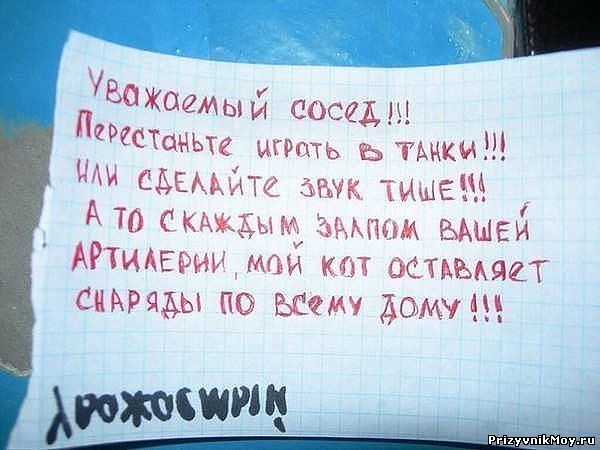 Уважаемый сосед!!!
Перестаньте играть в танки!!!
Или сделайте звук тише!!!
А то с каждым залпом вашей
артилерии, мой кот оставляет
снаряды по всему дому!!!
PrizyvnikMoy.ru